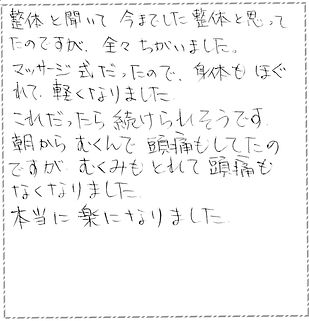 整体と聞いて 今までした整体と思って
たのですが、全々ちがいました。
マッサージ式だったので、身体もほぐ
れて、軽くなりました
これだったら続けられそうです
朝からむくんで頭痛もしてたの
ですが むくみもとれて頭痛も
なくなりました
本当に楽になりました